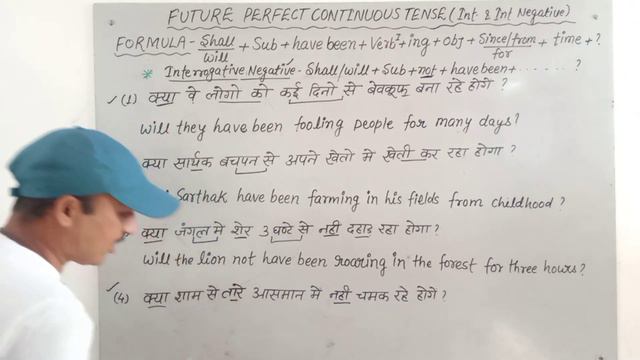 FUTURE PERFECT CONTINUOUS TENSE (Int & Int Negative)
FORMULA - Shall/Will + Sub + have been + Verb I + ing + obj + Since/from/for + time + ?
* Interrogative Negative - Shall/will + Sub + not + have been + ...... ?
(1) क्या वे लोगो को कई दिनो से बेवकूफ बना रहे होगे ?
Will they have been fooling people for many days?
क्या सार्थक बचपन से अपने खेतो मे खेती कर रहा होगा ?
Sarthak have been farming in his fields from childhood ?
क्या जंगल मे शेर 3 घण्टे से नही दहाड़ रहा होगा ?
Will the lion not have been roaring in the forest for three hours?
(4) क्या शाम से तारे आसमान मे नही चमक रहे होगे ?